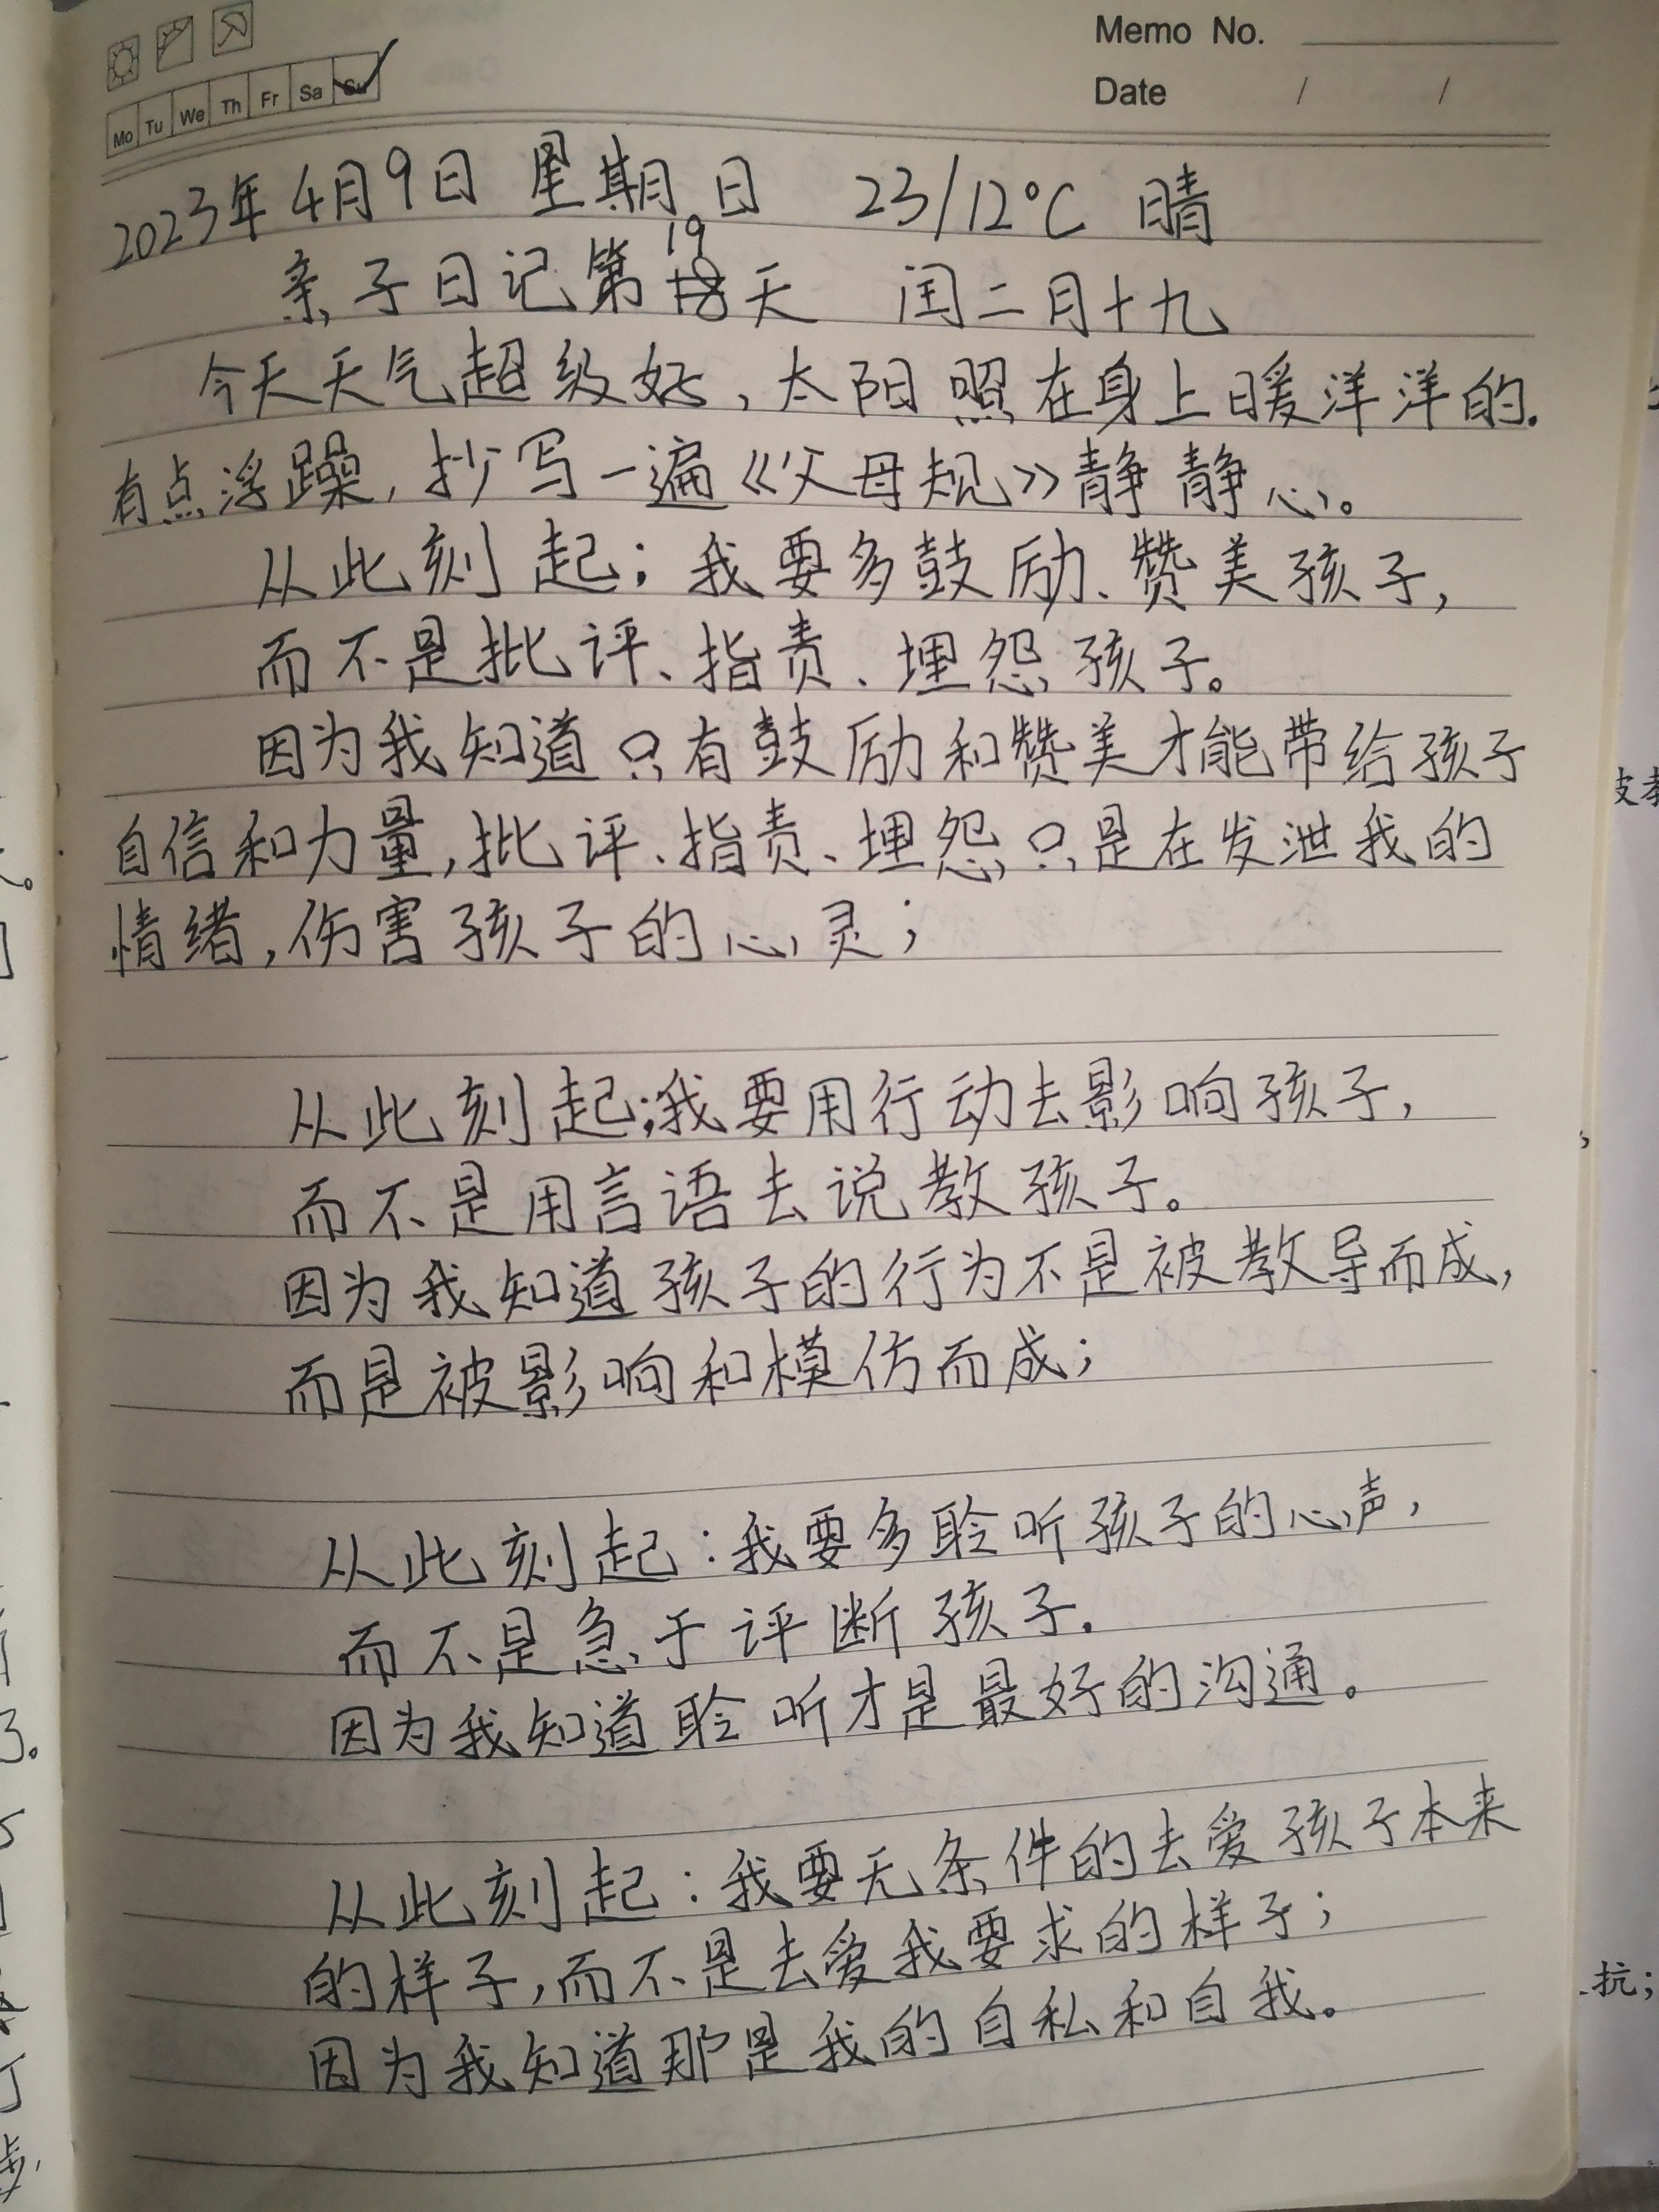 Memo No.
Date / /
Mo Tu We Th Fr Sa Su
2023年4月9日 星期日 23/12°C 晴
亲子日记第19天 闰二月十九
今天天气超级好,太阳照在身上暖洋洋的.
有点浮躁,抄写一遍《父母规》静静心。
从此刻起;我要多鼓励、赞美孩子,
而不是批评、指责、埋怨孩子。
因为我知道只有鼓励和赞美才能带给孩子
自信和力量,批评、指责、埋怨只是在发泄我的
情绪,伤害孩子的心灵;
从此刻起;我要用行动去影响孩子,
而不是用言语去说教孩子。
因为我知道孩子的行为不是被教导而成,
而是被影响和模仿而成;
从此刻起:我要多聆听孩子的心声,
而不是急于评断孩子.
因为我知道聆听才是最好的沟通。
从此刻起:我要无条件的去爱孩子本来
的样子,而不是去爱我要求的样子;
因为我知道那是我的自私和自我。
抗;